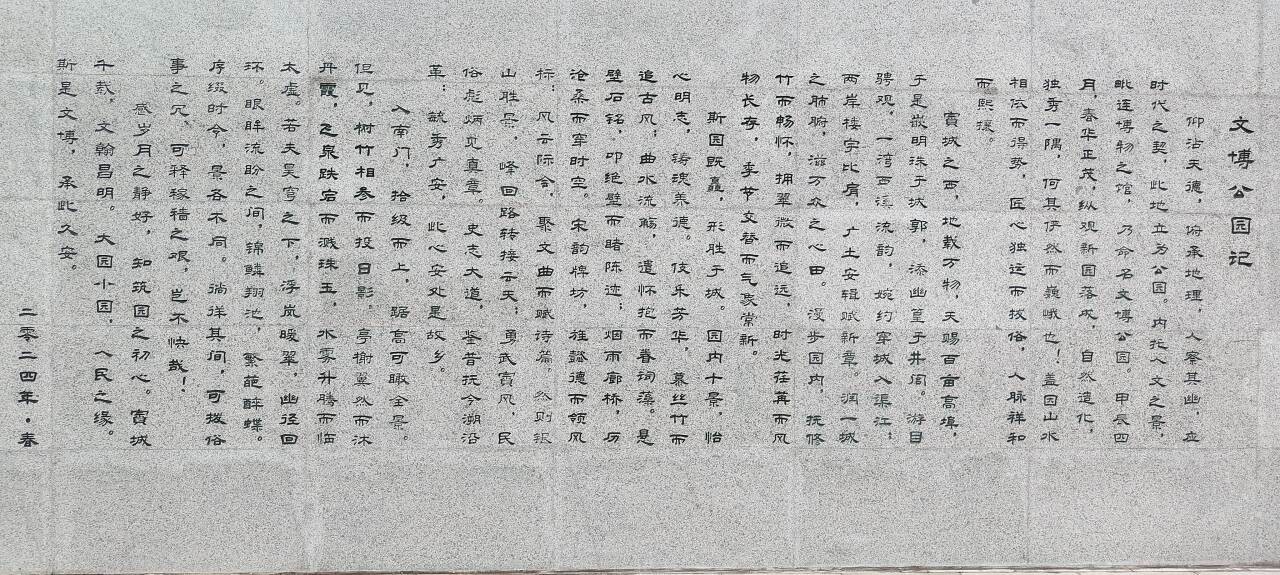 文博公园记
仰沾天德，俯承地理，人察其幽，立
时代之契，此地立为公园。内托人文之景，
毗连博物之馆，乃命名文博公园。甲辰四
月，春华正茂，纵观新园落成，自然造化，
独秀一隅，何其伊然而巍峨也！盖因山水
相依而得势，匠心独运而拔俗，人脉祥和
而熙攘。
賨城之西，地载万物，天赐百亩高埠，
于是嵌明珠于城郭，添幽篁于井闾。游目
骋观，一湾西溪流韵，婉约穿城入渠江；
两岸楼宇比肩，广土安辑赋新章。润一城
之肺腑，滋万众之心田。漫步园内，抚修
竹而畅怀，拥翠微而追远，时光荏苒而风
物长存，季节交替而气象常新。
斯园既矗，形胜于城。园内十景，怡
心明志，铸魂养德。伎乐芳华，慕丝竹而
追古风；曲水流觞，遣怀抱而眷词藻。是
壁石铭，叩绝壁而睹陈迹；烟雨廊桥，历
沧桑而穿时空。宋韵牌坊，旌懿德而领风
标；风云际会，聚文曲而赋诗篇。然则纵
山胜景，峰回路转接云天；勇武賨风，民
俗彪炳见真章。史志大道，鉴昔抚今溯沿
革；毓秀广安，此心安处是故乡。
入南门，拾级而上，踞高可瞰全景。
但见，树竹相参而投日影，亭榭翼然而沐
丹霞，之泉跌宕而溅珠玉，水雾升腾而临
太虚。若夫昊穹之下，浮岚暖翠，幽径回
环。眼眸流盼之间，锦鳞翔池，繁葩醉蝶。
序缀时令，景各不同。徜徉其间，可拨俗
事之冗，可释稼穑之艰，岂不快哉！
感岁月之静好，知筑园之初心。賨城
千载，文翰昌明。大园小园，人民之缘。
斯是文博，承此久安。
二零二四年·春